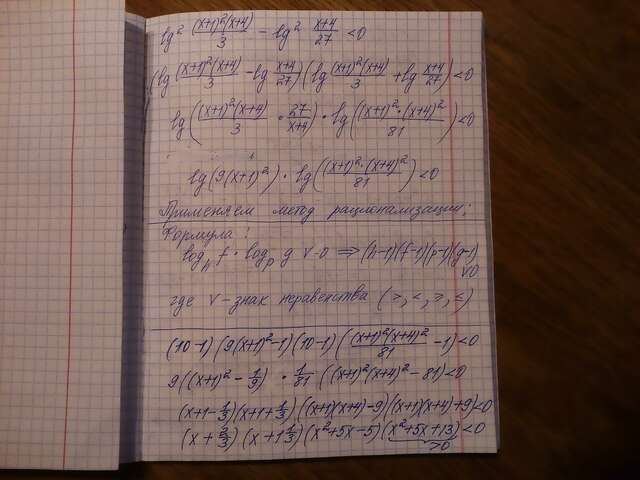 lg² (x+1)²(x+4)/3 - lg² x+4/27 <0
(lg (x+1)²(x+4)/3 - lg x+4/27)(lg (x+1)²(x+4)/3 + lg x+4/27)<0
lg((x+1)²(x+4)/3 · 27/x+4) · lg((x+1)²·(x+4)²/81)<0
lg(9(x+1)²) · lg((x+1)²·(x+4)²/81)<0
Применяем метод рационализации;
Формула:
log_h f · log_p g ∨ 0 ⇒ (h-1)(f-1)(p-1)(g-1)
∨0
где ∨ - знак неравенства (>, <, ≥, ≤)
(10-1)(9(x+1)²-1)(10-1)((x+1)²(x+4)²/81 -1)<0
9((x+1)² - 1/9) · 1/81 ((x+1)²(x+4)² - 81)<0
(x+1-1/3)(x+1+1/3)((x+1)(x+4)-9)((x+1)(x+4)+9)<0
(x+2/3)(x+1 1/3)(x²+5x-5)(x²+5x+13)<0
>0